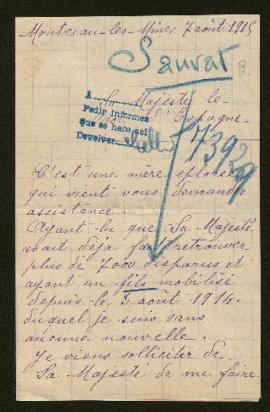 Montceau-les-Mines 7 août 1915
Sauvat
A Sa Majesté le
Espagne
A
Pedir informes
que se hace así
Devolver
73929
C'est une mère éplorée
qui vient vous demander
assistance.
Ayant lu que Sa Majesté
avait déja fait retrouver
plus de 7000 disparus et
ayant un fils mobilisé
depuis le 3 août 1914.
duquel je suis sans
aucune nouvelle.
Je viens solliciter de
Sa Majesté de me faire